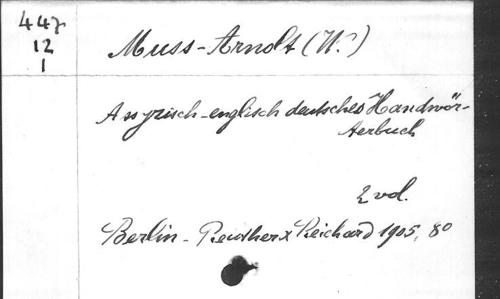 447
12
1
Muss-Arnolt (W.)
Assyrisch-englisch deutsches Handwör-
terbuch
2 vol.
Berlin - Reuther & Reichard 1905, 8o